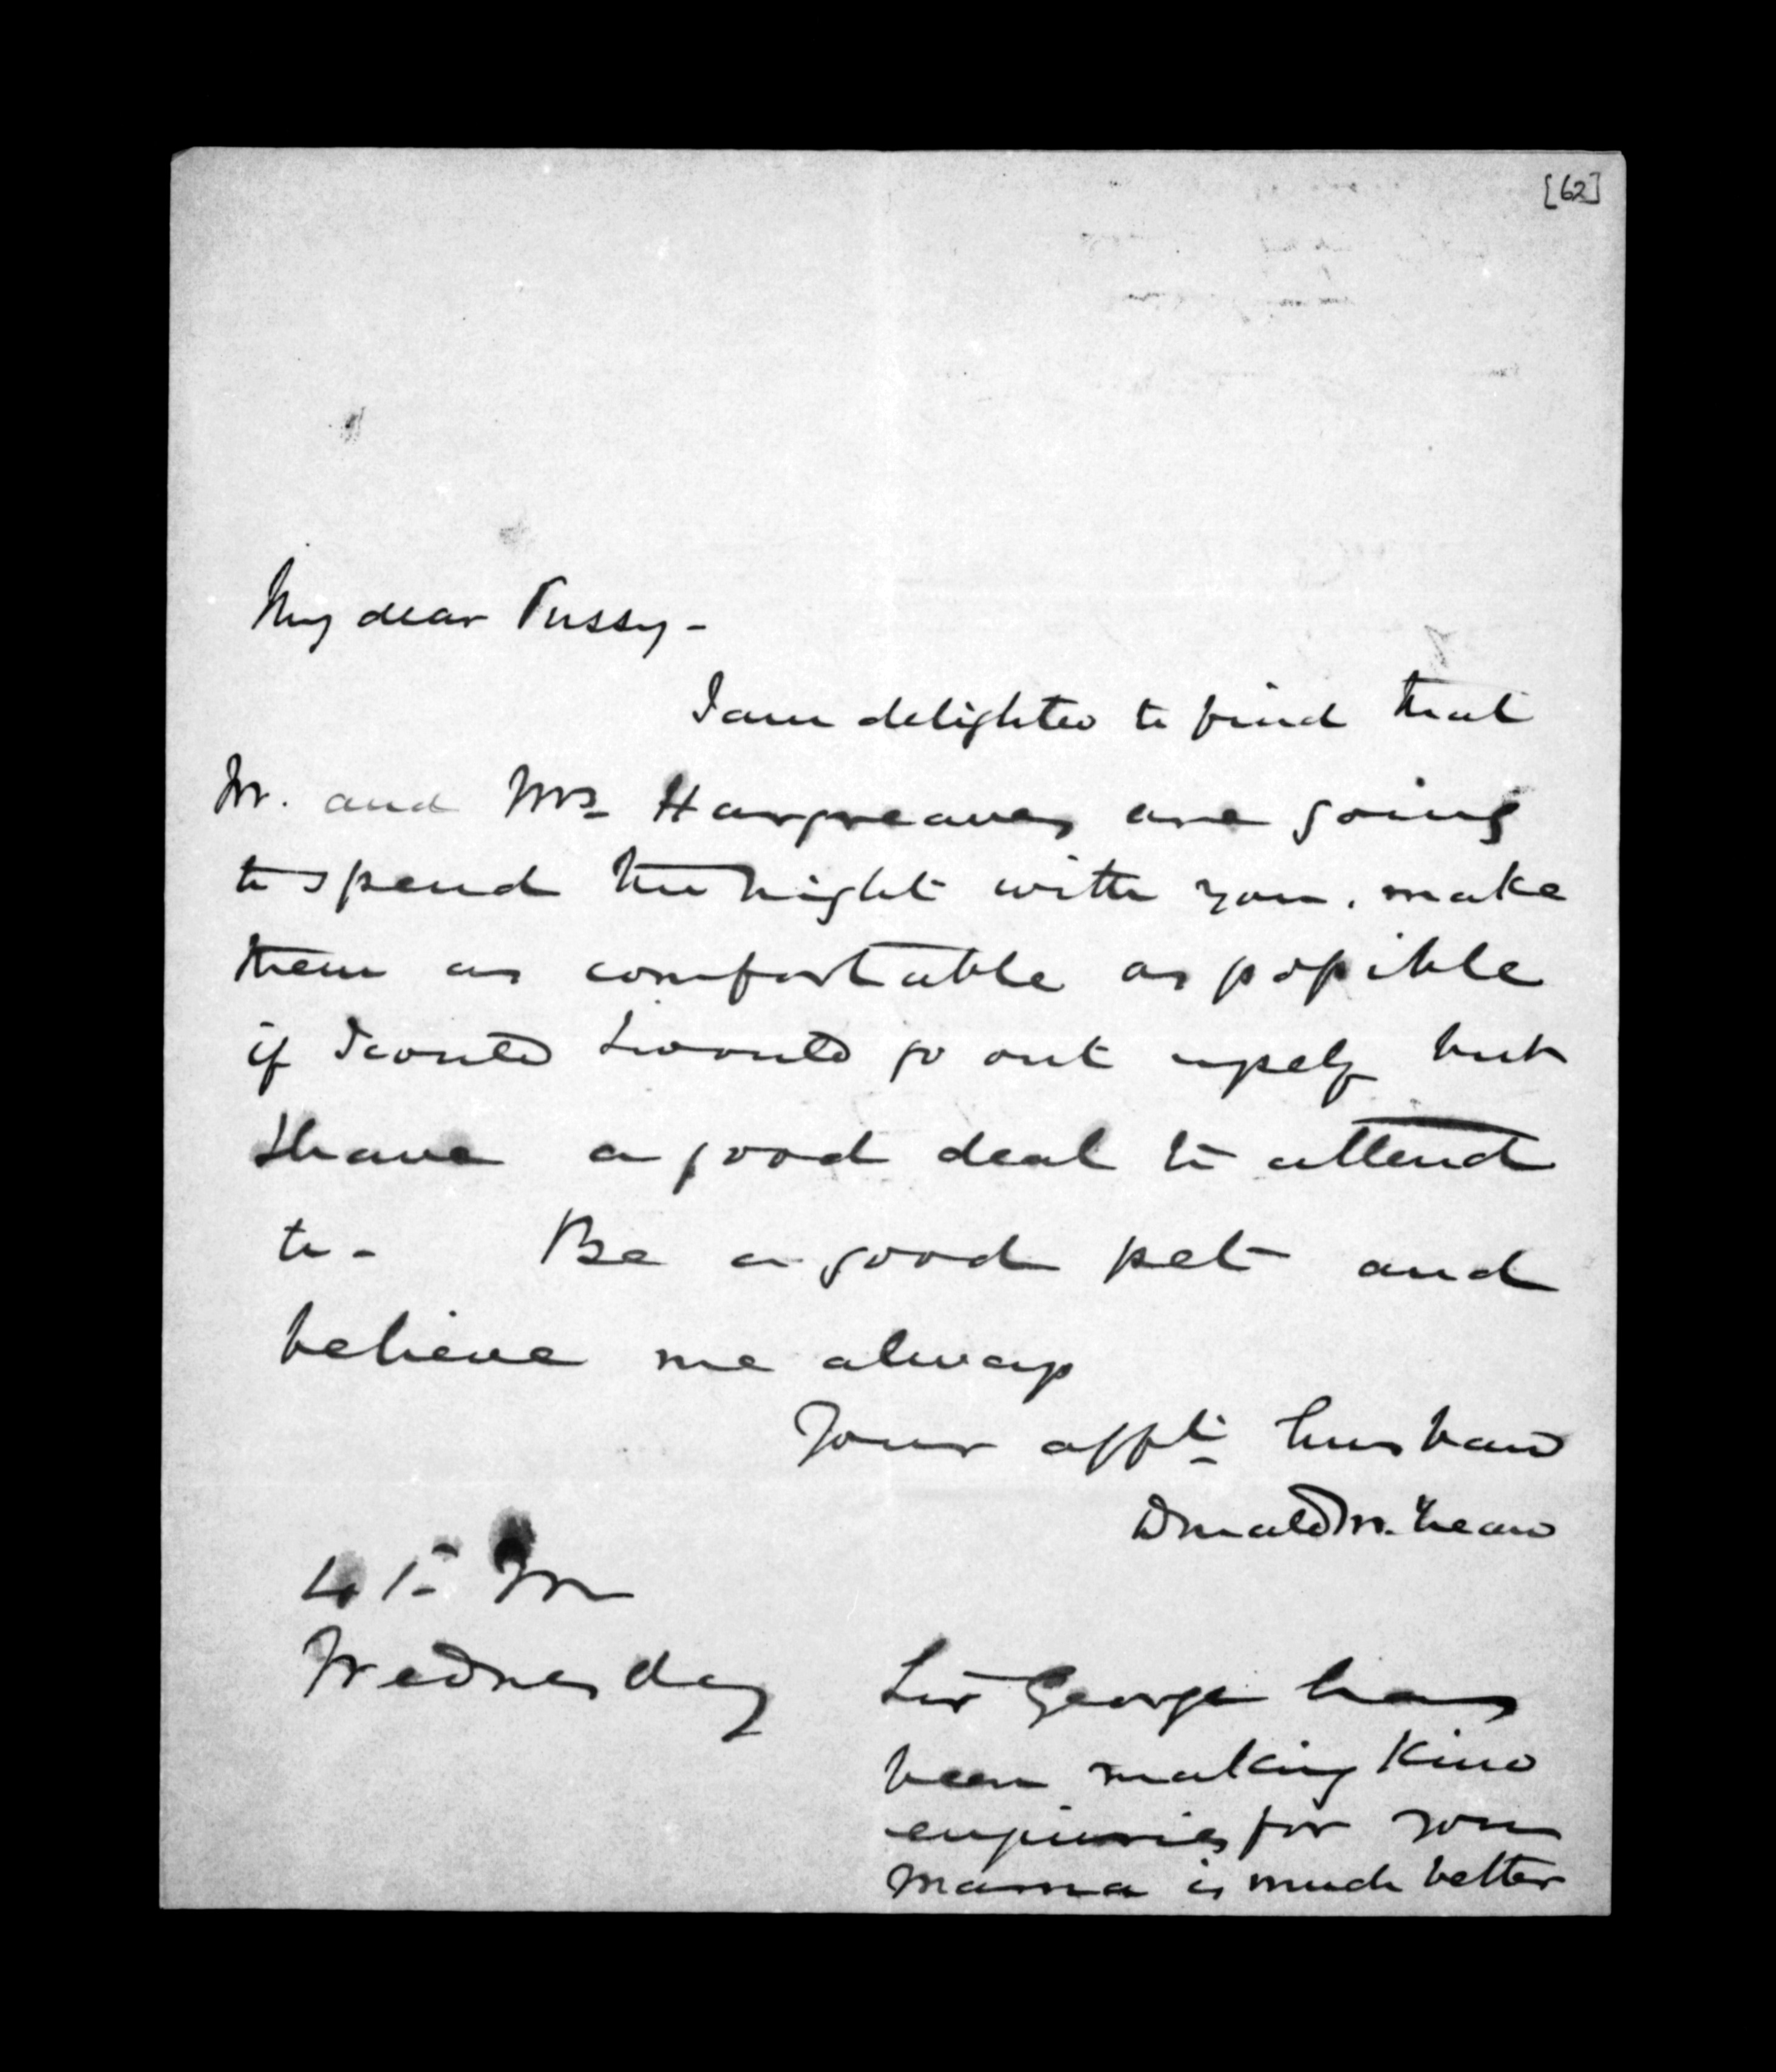 [62]
My dear Pussy -
I am delighted to find that
Mr. and Mrs Hargreaves are going
to spend the night with you. make
them as comfortable as possible
if I could I would go out myself but
I have a good deal to attend
to - Be a good pet and
believe me always
Your affte husband
Donald McLean
Wednesday
Sir George has
been making kind
enquiries for you
Mama is much better